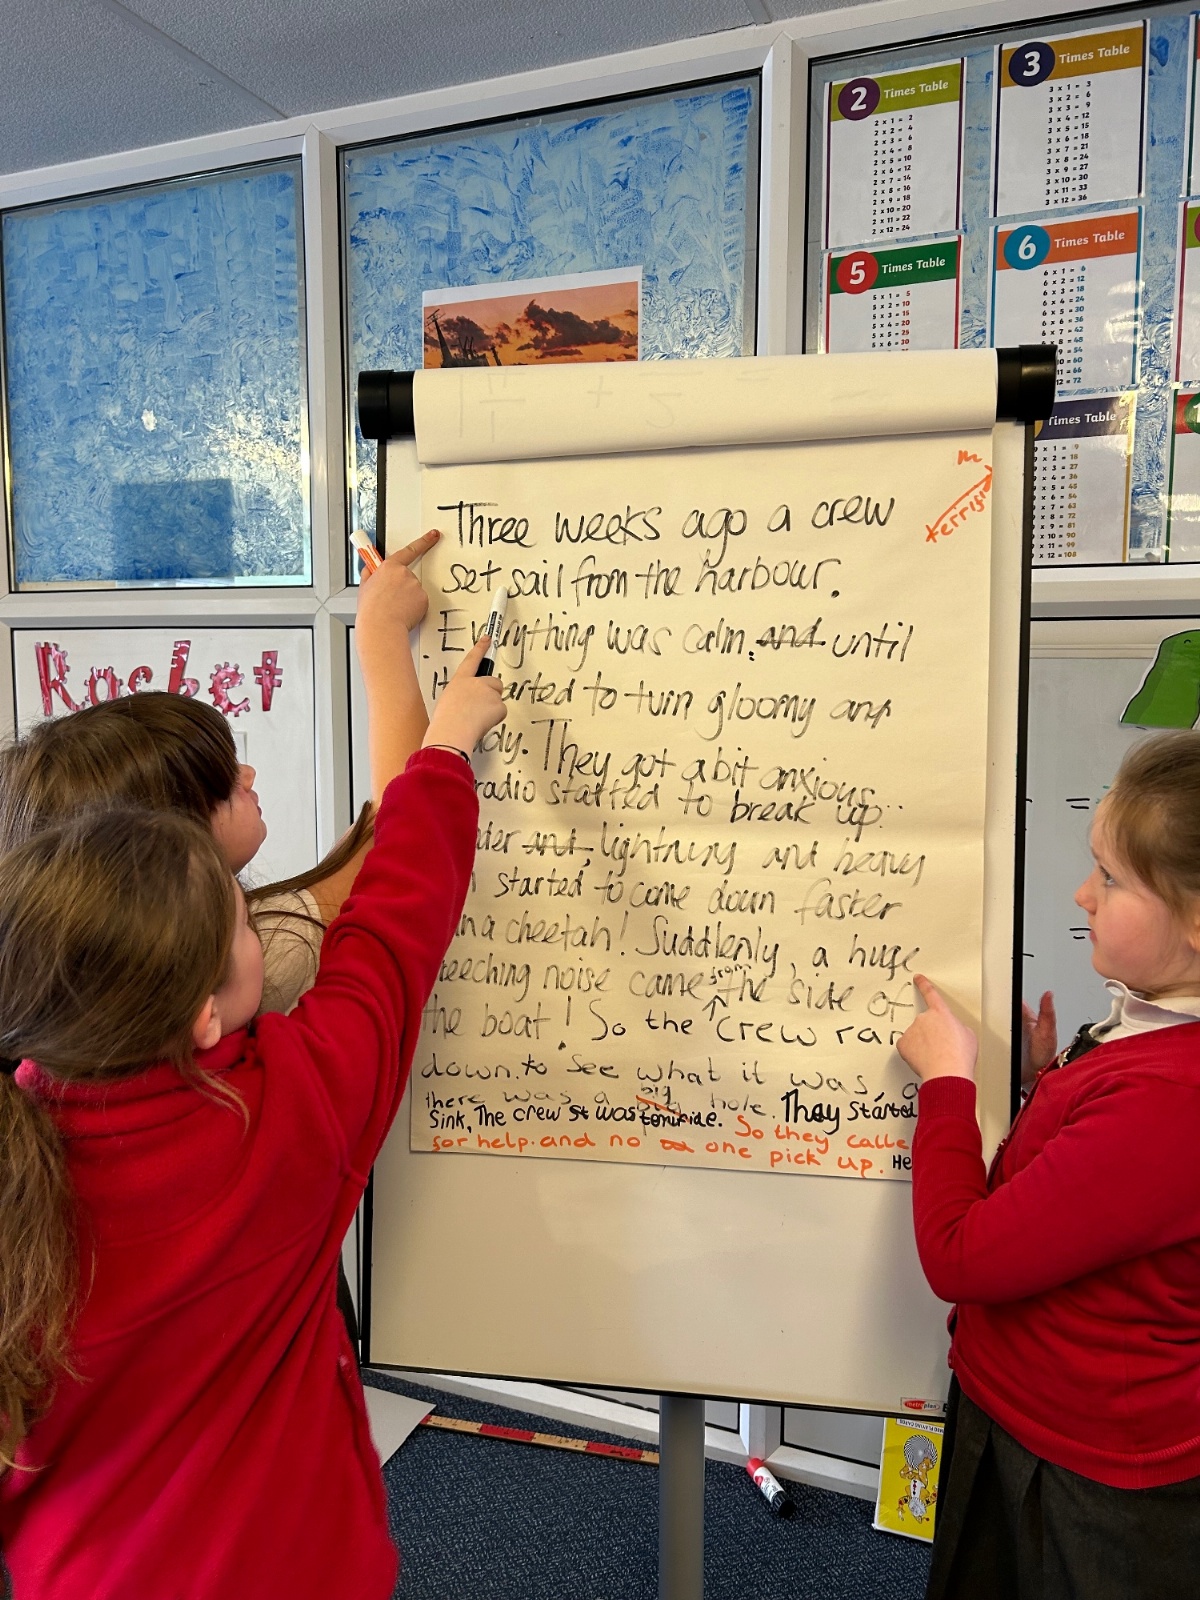 2 Times Table
2 x 1 = 2
2 x 2 = 4
2 x 3 = 6
2 x 4 = 8
2 x 5 = 10
2 x 6 = 12
2 x 7 = 14
2 x 8 = 16
2 x 9 = 18
2 x 10 = 20
2 x 11 = 22
2 x 12 = 24
3 Times Table
3 x 1 = 3
3 x 2 = 6
3 x 3 = 9
3 x 4 = 12
3 x 5 = 15
3 x 6 = 18
3 x 7 = 21
3 x 8 = 24
3 x 9 = 27
3 x 10 = 30
3 x 11 = 33
3 x 12 = 36
5 Times Table
5 x 1 = 5
5 x 2 = 10
5 x 3 = 15
5 x 4 = 20
5 x 5 = 25
5 x 6 = 30
6 Times Table
6 x 1 = 6
6 x 2 = 12
6 x 3 = 18
6 x 4 = 24
6 x 5 = 30
6 x 6 = 36
6 x 7 = 42
x 8 = 48
x 9 = 54
x 10 = 60
x 11 = 66
x 12 = 72
Times Table
9 x 1 = 9
9 x 2 = 18
9 x 3 = 27
9 x 4 = 36
9 x 5 = 45
9 x 6 = 54
9 x 7 = 63
9 x 8 = 72
9 x 9 = 81
9 x 10 = 90
9 x 11 = 99
9 x 12 = 108
Rocket
Three weeks ago a crew
set sail from the harbour.
Everything was calm. and until
it started to turn gloomy and
They got a bit anxious...
radio started to break up..
and, lightning and heavy
started to come down faster
a cheetah! Suddenly, a huge
noise came from the side of
the boat! So the crew ran
down to see what it was,
there was a big hole. They started
Sink, The crew was
So they calle
for help. and no one pick up. He